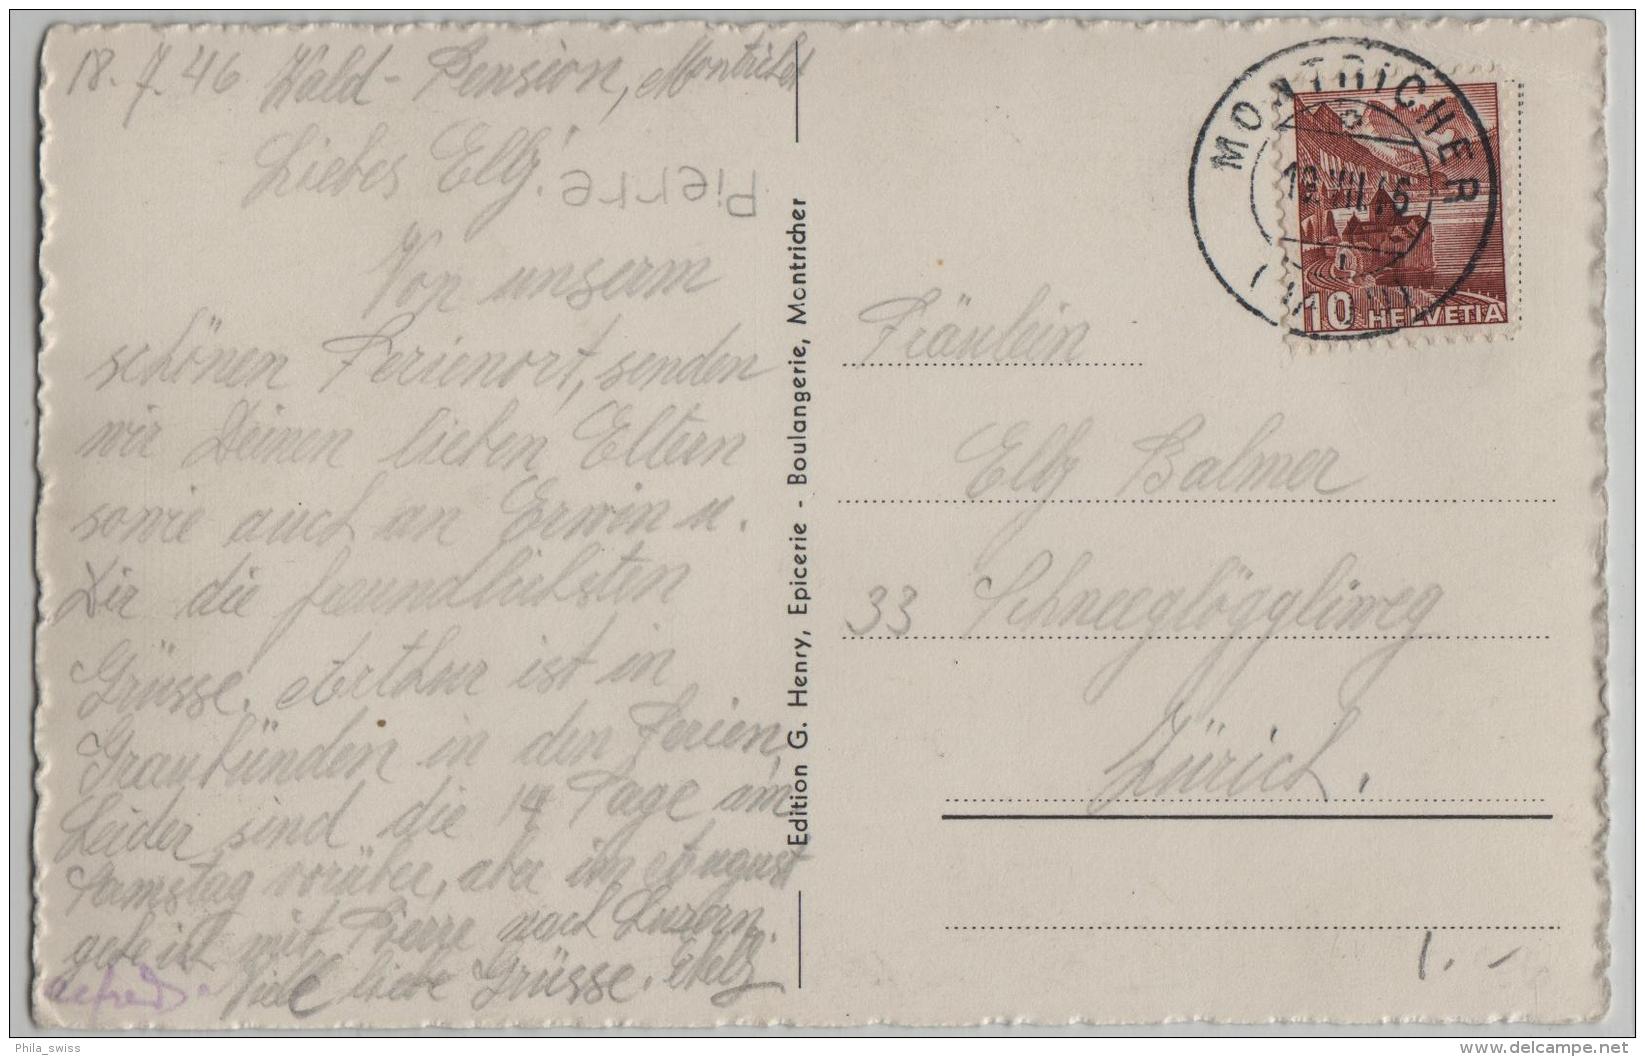 18. 7. 46 Wald - Pension, Montricher
Liebes Elly!
Pierre
Von unserm
schönen Ferienort, senden
wir Deinen lieben Eltern
sowie auch an Erwin u.
Dir die freundlichsten
Grüsse. Arthur ist in
Graubünden in den Ferien,
Leider sind die 14 Tage am
Samstag vorüber, aber im August
gehe ich mit Pierre nach Luzern.
Viele liebe Grüsse.
Alfred
Edition G. Henry, Epicerie - Boulangerie, Montricher
MONTRICHER
VII.46
(VAUD)
10 HELVETIA
Fräulein
Elly Balmer
33 Schneeglöggliweg
Zürich.
1.-
Phila_swiss
delcampe.net